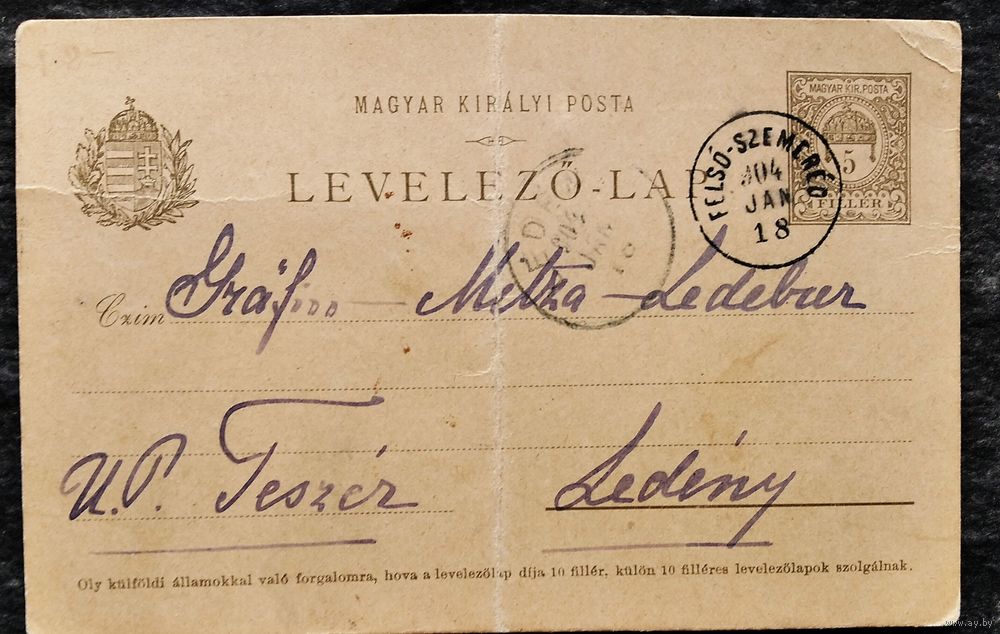 MAGYAR KIRÁLYI POSTA
LEVELEZŐ-LAP
MAGYAR KIR. POSTA
5
FILLÉR
FELSŐ-SZEMERÉD
904
JAN
18
904
JAN
18
Czim Gräfin Metza Ledebur
U. P. Teszér Ledény
Oly külföldi államokkal való forgalomra, hova a levelezőlap díja 10 fillér, külön 10 filléres levelezőlapok szolgálnak.
www.ay.by